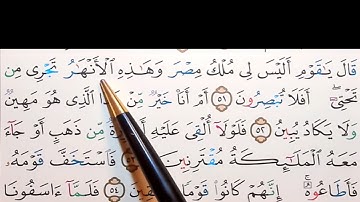 قَالَ يَٰقَوْمِ أَلَيْسَ لِى مُلْكُ مِصْرَ وَهَٰذِهِ ٱلْأَنْهَٰرُ تَجْرِى مِن
تَحْتِىٓ ۖ أَفَلَا تُبْصِرُونَ ٥١ أَمْ أَنَا۠ خَيْرٌ مِّنْ هَٰذَا ٱلَّذِى هُوَ مَهِينٌ
وَلَا يَكَادُ يُبِينُ ٥٢ فَلَوْلَآ أُلْقِىَ عَلَيْهِ أَسْوِرَةٌ مِّن ذَهَبٍ أَوْ جَآءَ
مَعَهُ ٱلْمَلَٰٓئِكَةُ مُقْتَرِنِينَ ٥٣ فَٱسْتَخَفَّ قَوْمَهُۥ
فَأَطَاعُوهُ ۚ إِنَّهُمْ كَانُوا۟ قَوْمًا فَٰسِقِينَ ٥٤ فَلَمَّآ ءَاسَفُونَا